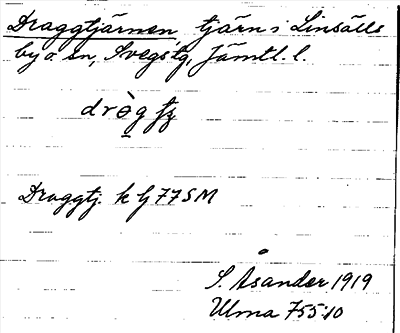 Draggtjärnen, tjärn i Linsälls
by o. sn, Svegs tg, Jämtl. l.
Draggtj. k bj 77 S M
S. Åsander 1919
Ulma 755:10